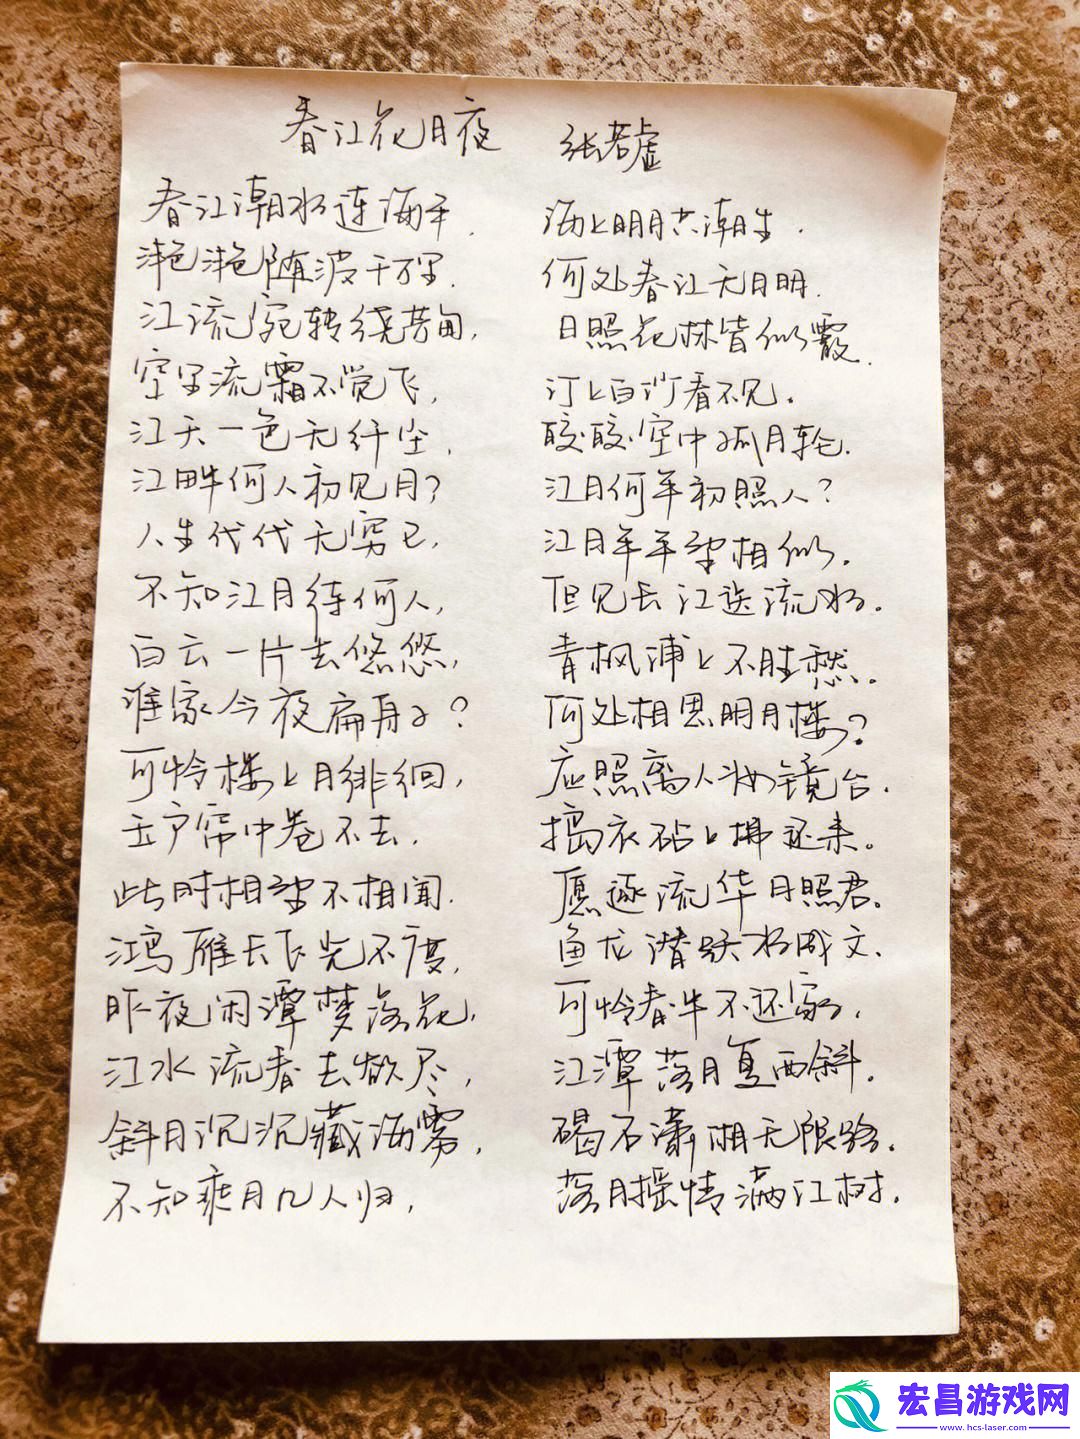 春江花月夜 张若虚
春江潮水连海平,
海上明月共潮生.
滟滟随波千万里.
何处春江无月明.
江流宛转绕芳甸,
日照花林皆似霰.
空里流霜不觉飞,
汀上白沙看不见.
江天一色无纤尘,
皎皎空中孤月轮.
江畔何人初见月?
江月何年初照人?
人生代代无穷已,
江月年年望相似.
不知江月待何人,
但见长江送流水.
白云一片去悠悠,
青枫浦上不胜愁.
谁家今夜扁舟子?
何处相思明月楼?
可怜楼上月徘徊,
应照离人妆镜台.
玉户帘中卷不去.
捣衣砧上拂还来.
此时相望不相闻.
愿逐流华月照君.
鸿雁长飞光不度,
鱼龙潜跃水成文.
昨夜闲潭梦落花,
可怜春半不还家,
江水流春去欲尽,
江潭落月复西斜.
斜月沉沉藏海雾,
碣石潇湘无限路.
不知乘月几人归,
落月摇情满江树.
宏昌游戏网
www.hcs-laser.com